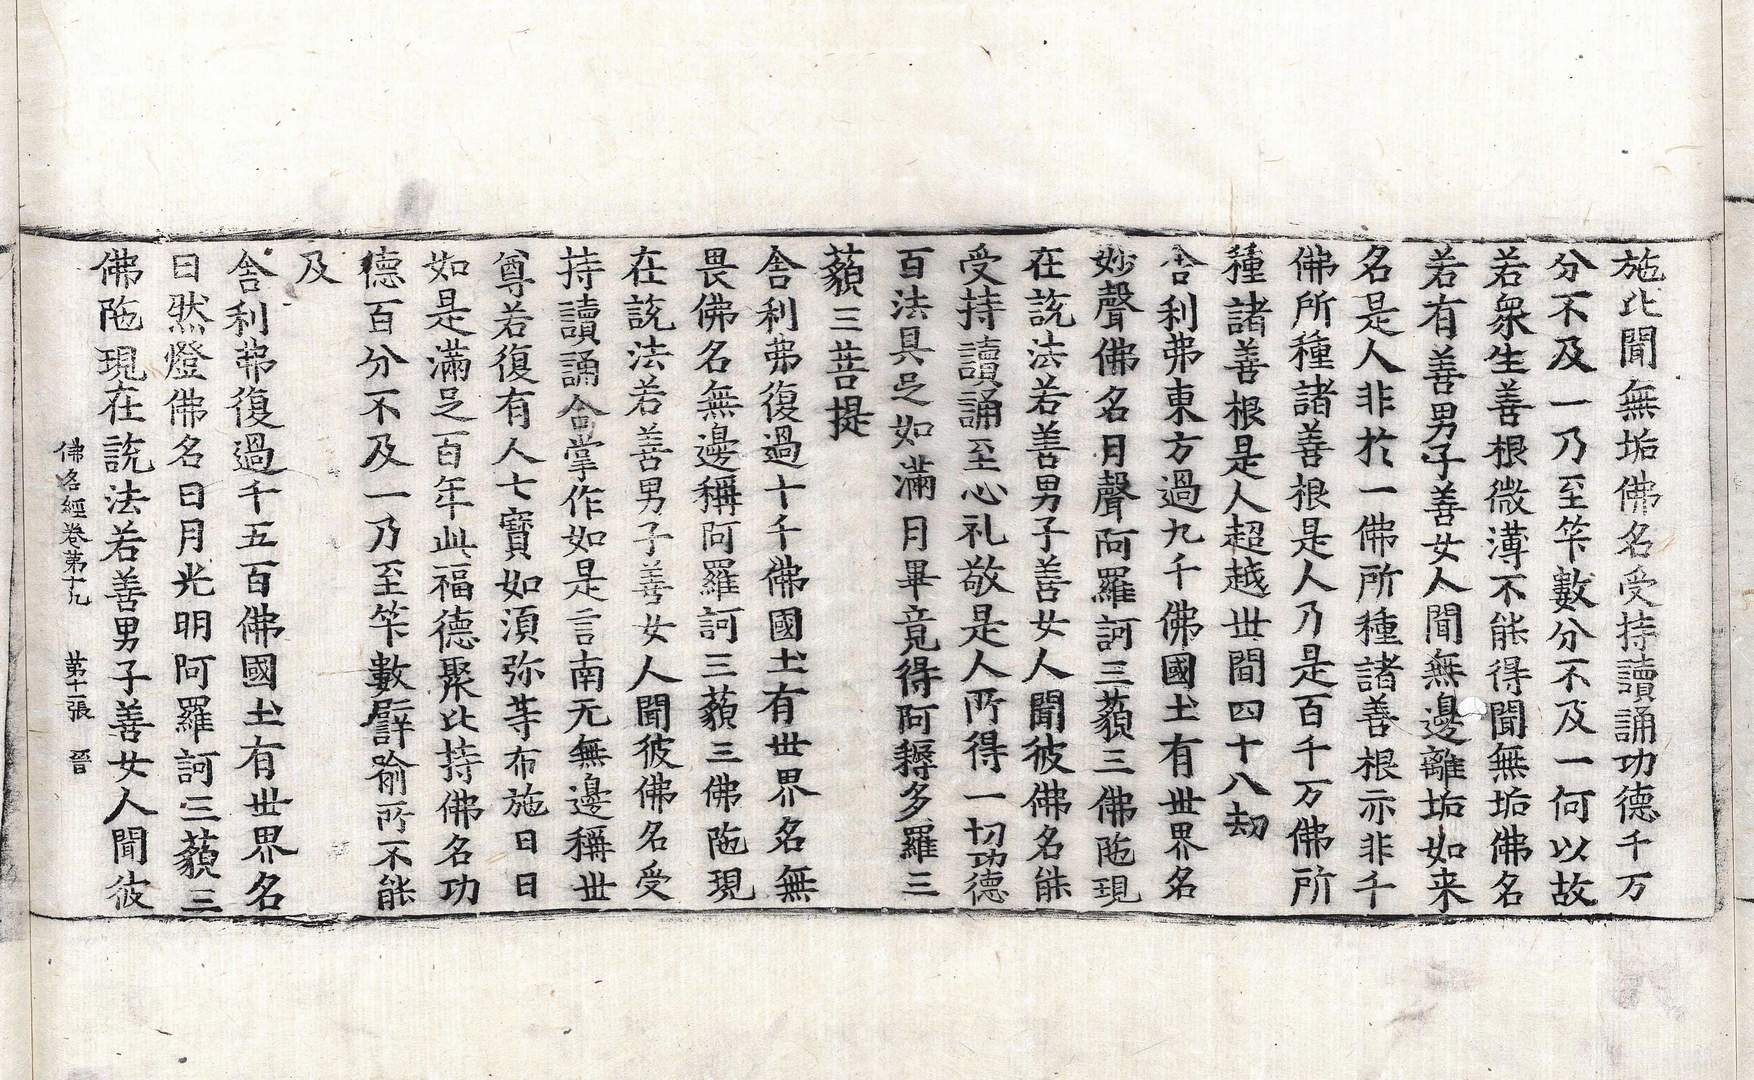 施比聞無垢佛名受持讀誦功德千万
分不及一乃至笇數分不及一何以故
若衆生善根微薄不能得聞無垢佛名
若有善男子善女人聞無邊離垢如来
名是人非於一佛所種諸善根亦非千
佛所種諸善根是人乃是百千万佛所
種諸善根是人超越世間四十八劫
舎利弗東方過九千佛國土有世界名
妙聲佛名月聲阿羅訶三藐三佛陁現
在說法若善男子善女人聞彼佛名能
受持讀誦至心礼敬是人所得一切功德
百法具足如滿月畢竟得阿耨多羅三
藐三菩提
舎利弗復過十千佛國土有世界名無
畏佛名無邊稱阿羅訶三藐三佛陁現
在說法若善男子善女人聞彼佛名受
持讀誦合掌作如是言南无無邊稱世
尊若復有人七寶如須弥等布施日日
如是滿足一百年此福德聚比持佛名功
德百分不及一乃至笇數譬喻所不能
及
舎利弗復過千五百佛國土有世界名
日然燈佛名日月光明阿羅訶三藐三
佛陁現在說法若善男子善女人聞彼
佛名經卷第十九 第十二張 晉